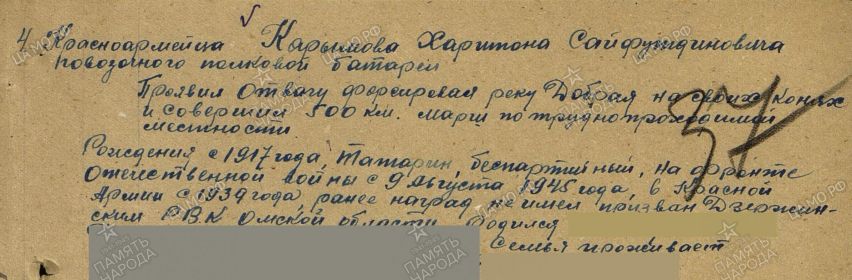 4. Красноармейца Карымова Харитона Сайфутдиновича
повозочного полковой батареи
Проявил отвагу форсировал реку Добрая на своих конях
и совершил 500 км. марш по труднопроходимой
местности
37
Рождения с 1917 года, татарин, беспартийный, на фронте
Отечественной войны с 9 Августа 1945 года, в Красной
Армии с 1939 года, ранее наград не имел призван Дзержин-
ским РВК Омской области. Родился
Семья проживает